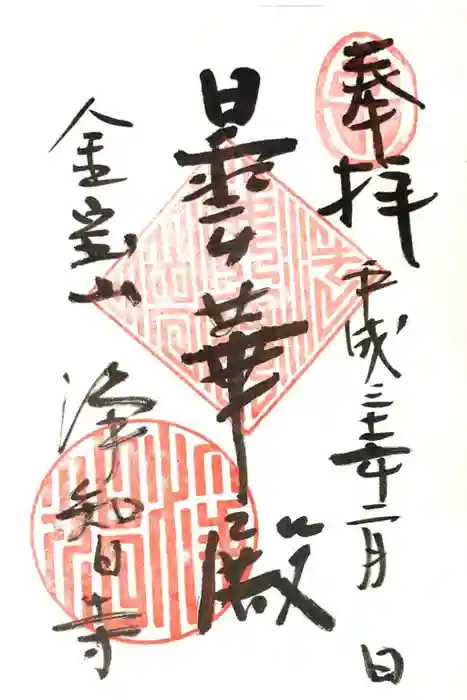 奉拝
平成二十二年二月 日
曇華殿
金宝山
浄智寺